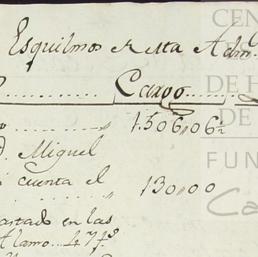 Esquilmos de esta Adm.
Cargo
1.506,,06
D. Miguel
cuenta el
130,,00
en las
Alamo.. 47 f.s
CEN
DE H
DE
FUN
Ca